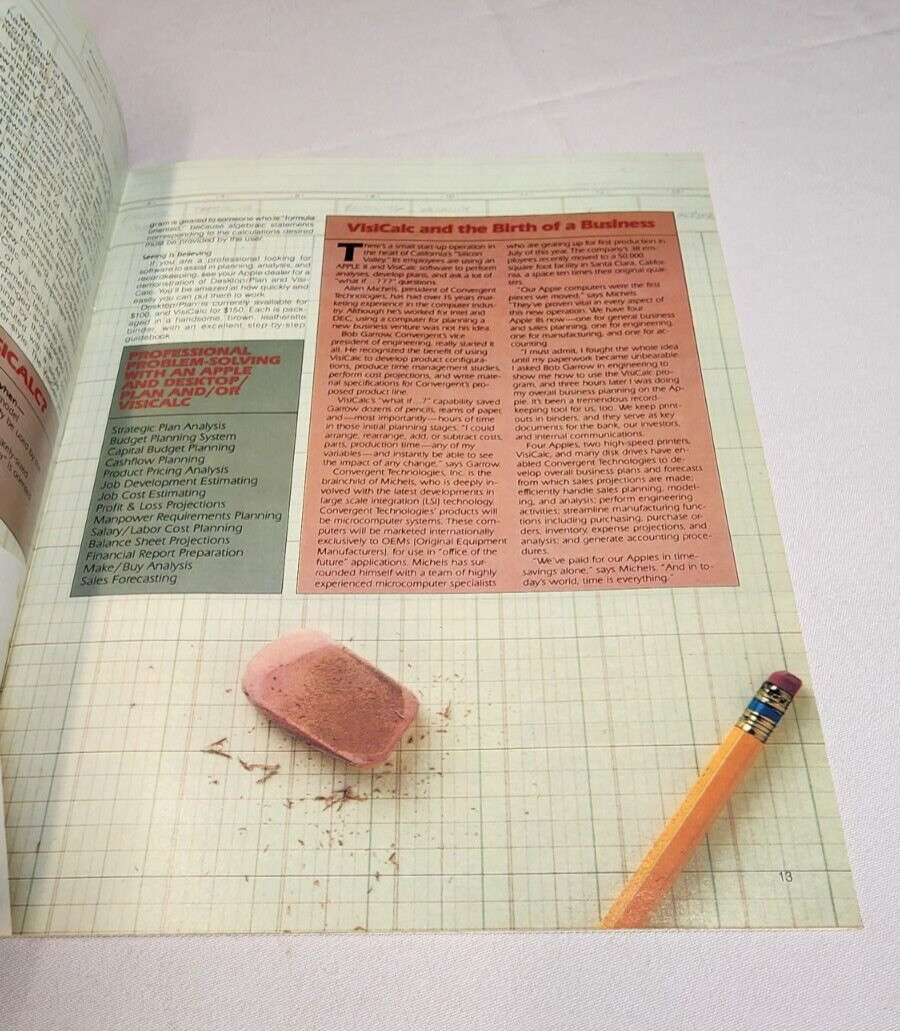 gram is geared to someone who is "formula
oriented," because algebraic statements
corresponding to the calculations desired
must be provided by the user.
Seeing is Believing
If you are a professional looking for
software to assist in planning, analysis, and
recordkeeping, see your Apple dealer for a
demonstration of Desktop/Plan and Visi-
Calc. You'll be amazed at how quickly and
easily you can put them to work.
Desktop/Plan is currently available for
$100, and VisiCalc for $150. Each is pack-
aged in a handsome, brown, leatherette
binder, with an excellent step-by-step
guidebook.
PROFESSIONAL
PROBLEM-SOLVING
WITH AN APPLE
AND DESKTOP/
PLAN AND/OR
VISICALC
Strategic Plan Analysis
Budget Planning System
Capital Budget Planning
Cashflow Planning
Product Pricing Analysis
Job Development Estimating
Job Cost Estimating
Profit & Loss Projections
Manpower Requirements Planning
Salary/Labor Cost Planning
Balance Sheet Projections
Financial Report Preparation
Make/Buy Analysis
Sales Forecasting
VisiCalc and the Birth of a Business
There's a small start-up operation in
the heart of California's "Silicon
Valley." Its employees are using an
APPLE II and VisiCalc software to perform
analyses, develop plans, and ask a lot of
"what if...???" questions.
Allen Michels, president of Convergent
Technologies, has had over 15 years mar-
keting experience in the computer indus-
try. Although he's worked for Intel and
DEC, using a computer for planning a
new business venture was not his idea.
Bob Garrow, Convergent's vice
president of engineering, really started it
all. He recognized the benefit of using
VisiCalc to develop product configura-
tions, produce time management studies,
perform cost projections, and write mate-
rial specifications for Convergent's pro-
posed product line.
VisiCalc's "what if...?" capability saved
Garrow dozens of pencils, reams of paper,
and—most importantly—hours of time
in those initial planning stages. "I could
arrange, rearrange, add, or subtract costs,
parts, production time—any of my
variables—and instantly be able to see
the impact of any change," says Garrow.
Convergent Technologies, Inc. is the
brainchild of Michels, who is deeply in-
volved with the latest developments in
large scale integration (LSI) technology.
Convergent Technologies' products will
be microcomputer systems. These com-
puters will be marketed internationally
exclusively to OEMs (Original Equipment
Manufacturers), for use in "office of the
future" applications. Michels has sur-
rounded himself with a team of highly
experienced microcomputer specialists
who are gearing up for first production in
July of this year. The company's 38 em-
ployees recently moved to a 50,000
square foot facility in Santa Clara, Califor-
nia, a space ten times their original quar-
ters.
"Our Apple computers were the first
pieces we moved," says Michels.
"They've proven vital in every aspect of
this new operation. We have four
Apple IIs now—one for general business
and sales planning, one for engineering,
one for manufacturing, and one for ac-
counting.
"I must admit, I fought the whole idea
until my paperwork became unbearable.
I asked Bob Garrow in engineering to
show me how to use the VisiCalc pro-
gram, and three hours later I was doing
my overall business planning on the Ap-
ple. It's been a tremendous record-
keeping tool for us, too. We keep print-
outs in binders, and they serve as key
documents for the bank, our investors,
and internal communications."
Four Apples, two high-speed printers,
VisiCalc, and many disk drives have en-
abled Convergent Technologies to de-
velop overall business plans and forecasts
from which sales projections are made;
efficiently handle sales planning, model-
ing, and analysis; perform engineering
activities; streamline manufacturing func-
tions including purchasing, purchase or-
ders, inventory, expense projections, and
analysis; and generate accounting proce-
dures.
"We've paid for our Apples in time-
savings alone," says Michels. "And in to-
day's world, time is everything."
13